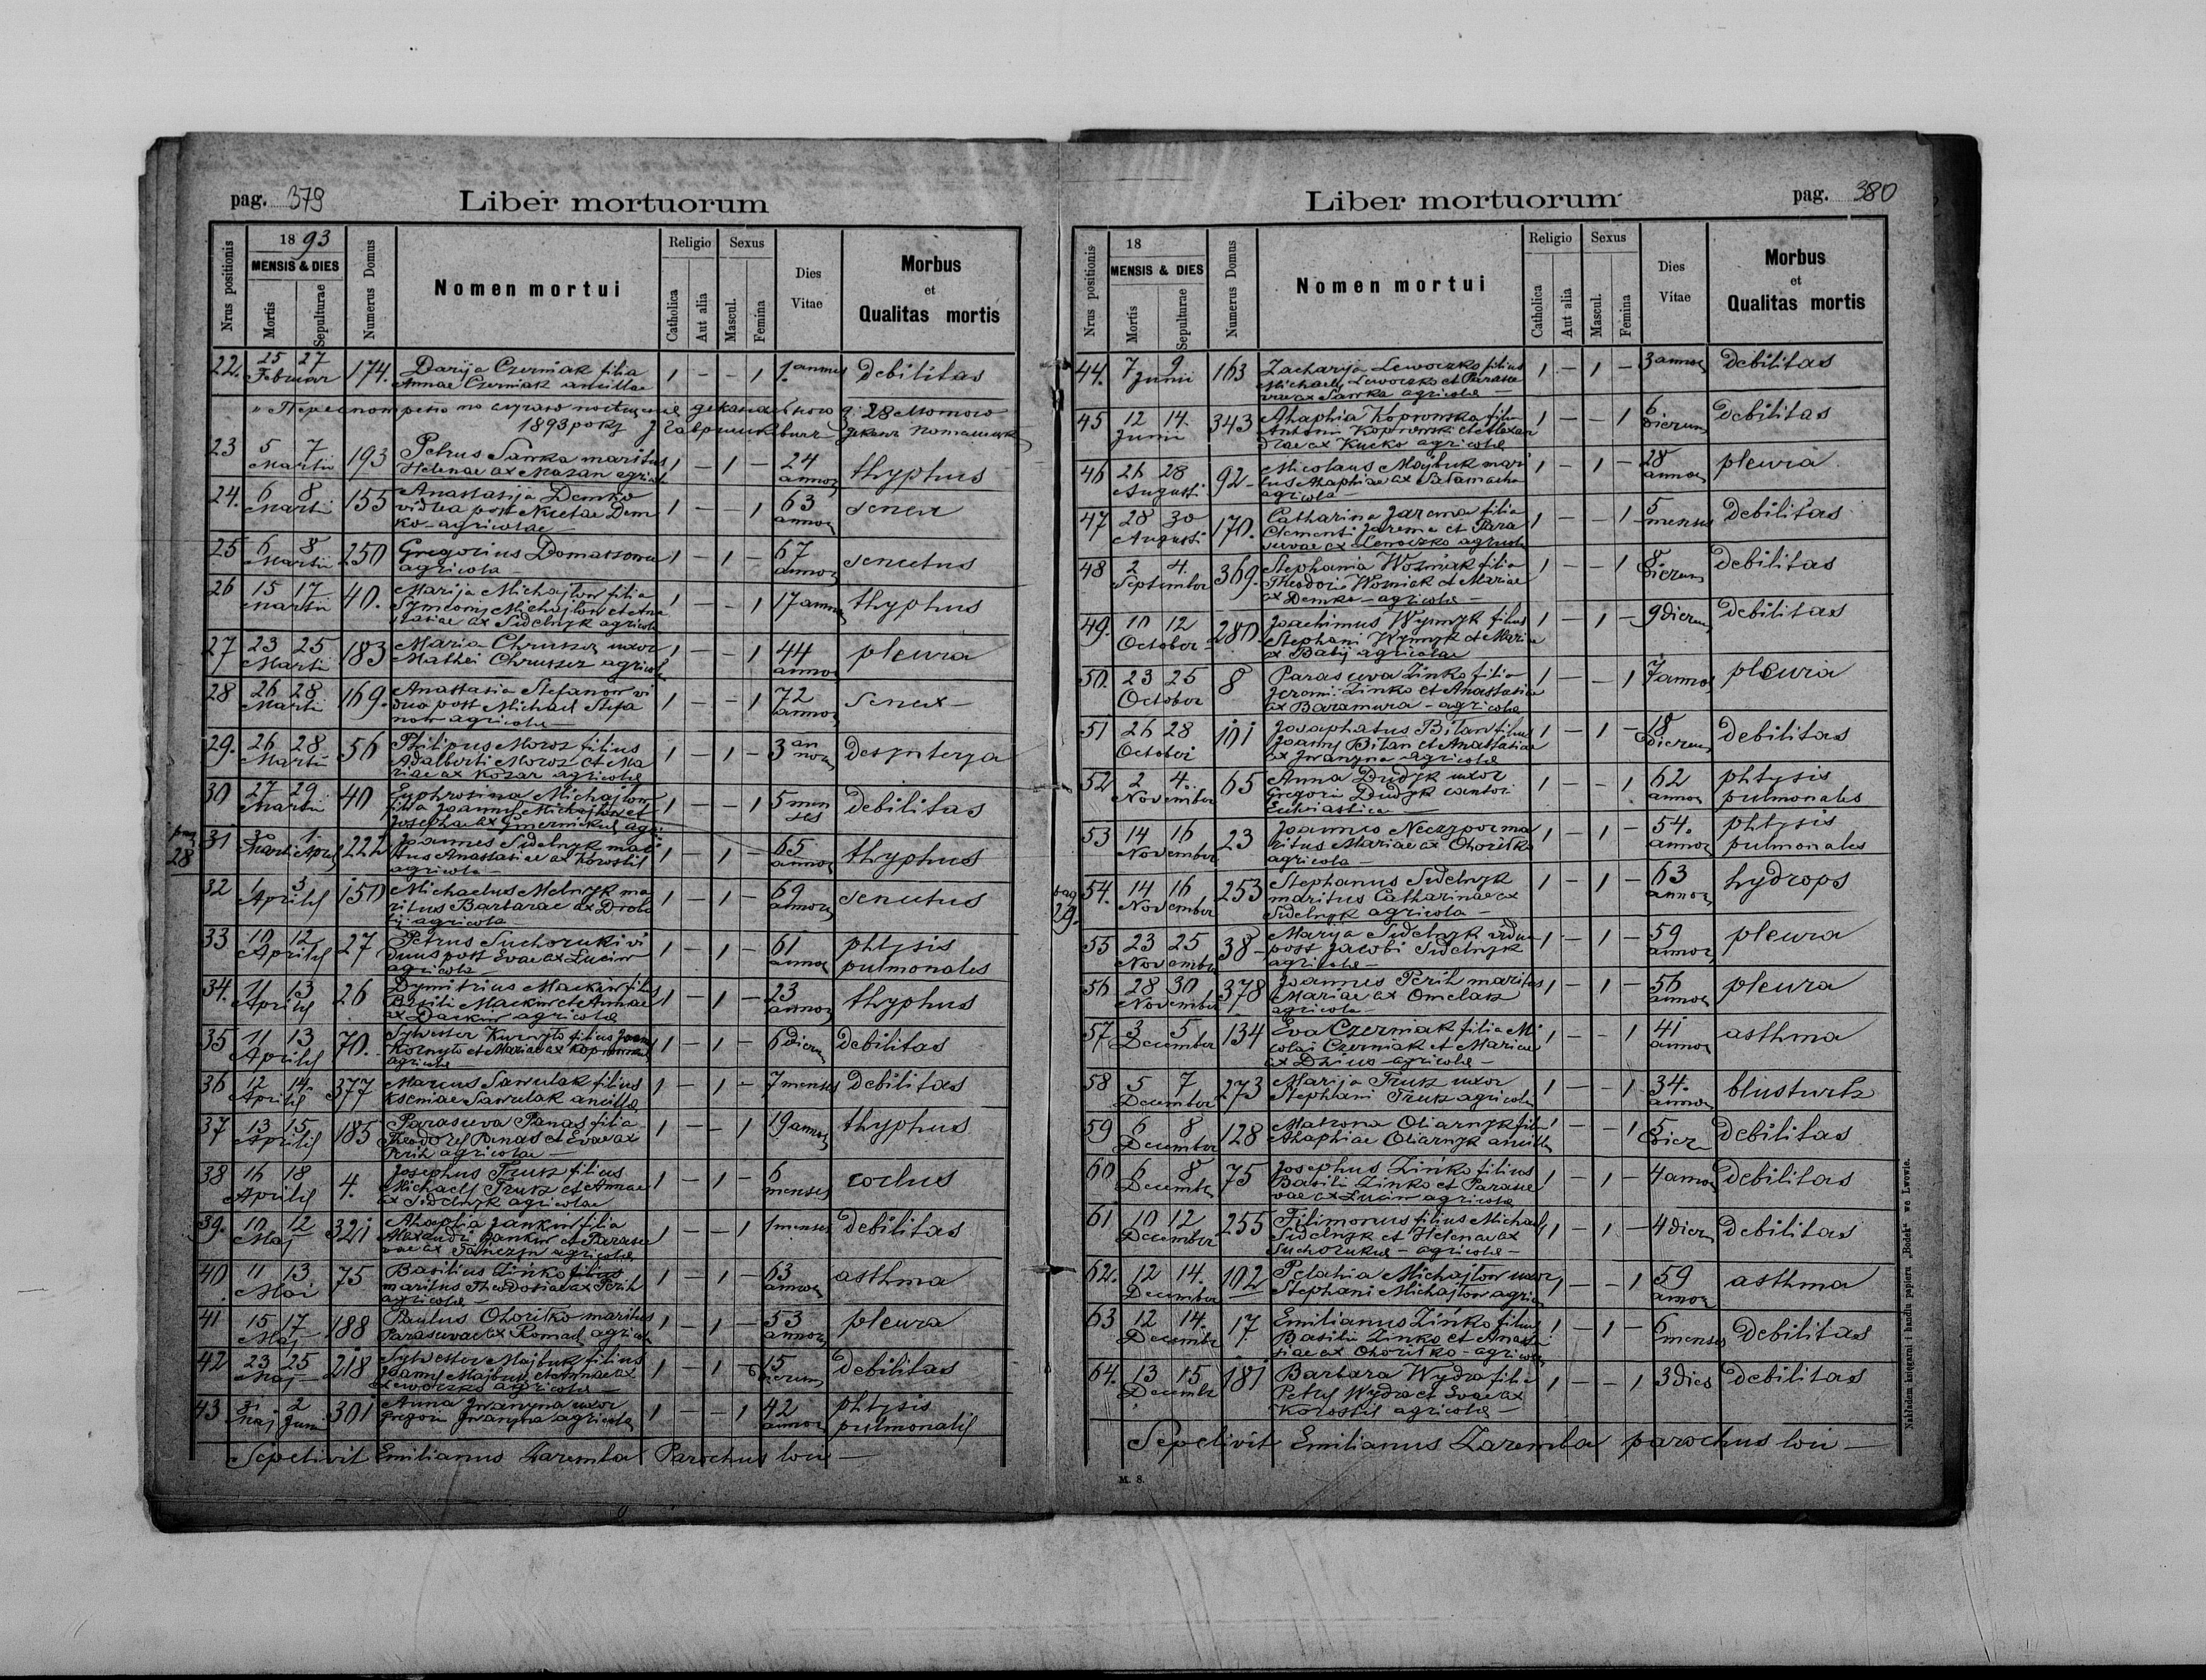 pag. 379
Liber mortuorum
Nrus positionis
18 93
MENSIS & DIES
Mortis
Sepulturae
Numerus Domus
Nomen mortui
Religio
Catholica
Aut alia
Sexus
Mascul.
Femina
Dies
Vitae
Morbus
et
Qualitas mortis
22. 25 27 Februar 174. Darija Czerniak filia 1 - - 1 1. annus Debilitas
Annae Czerniak ancillae
1893
23 5 7 Martii 193 Petrus Sawka maritus 1 - 1 - 24 annor thyphus
Helenae ex Mazan agricola
24. 6 8 Martii 155 Anastasija Demko 1 - - 1 63 annor senex
vidua post Nicetae Dem
ko - agricolae
25 6 8 Martii 250 Gregorius 1 - 1 - 67 annor senectus
agricola
26 15 17 Martii 40. Marija Michajlow filia 1 - - 1 17 annor thyphus
Symeony Michajlow et Ana
stasiae ex Sidelnyk agricola
27 23 25 Martii 183 Maria Chruszcz uxor 1 - - 1 44 annor pleura
Mathei Chruszcz agricola
28 26 28 Martii 169. Anastasia Stefanow vi 1 - - 1 72 annor Senex
dua post Michael Stefa
now agricolae
29. 26 28 Martii 56 Philipus Moroz filius 1 - 1 - 3 annor Desynterja
Adalberti Moroz et Ma
riae ex Kozar agricolae
30 27 29 Martii 40 Euphrosina Michajlow 1 - - 1 5 menses debilitas
filia Joannis Michajlow et
Josephae ex
pag 28
31 Martii 1 April 222 Joannes Sidelnyk mari 1 - 1 - 65 annor thyphus
tus Anastasiae ex Korostil
agricola
32 1 3 Aprilis 150 Michaelus Melnyk ma 1 - 1 - 69 annor senectus
ritus Barbarae ex Drobo
tij agricola
33 10 12 Aprilis 27 Petrus Suchoruki vi 1 - 1 - 61 annor phtysis
duus post Evae ex Luciw pulmonales
agricola
34. 11 13 Aprilis 26 Dymitrius Mackiw filius 1 - 1 - 23 annor thyphus
Basili Mackiw et Annae
ex Dackiw agricolae
35 11 13 Aprilis 70. Sylvester Kurnyto filius 1 - 1 - 6 dierum Debilitas
et Mariae ex
agricolae
36 12 14 Aprilis 377 Marcus Sawulak filius 1 - 1 - 7 menses Debilitas
Kseniae Sawulak ancilla
37 13 15 Aprilis 185 Parasceva Panas filia 1 - - 1 19 annor thyphus
Theodorij Panas et Evae ex
Perih agricolae
38 16 18 Aprilis 4. Josephus Truk filius 1 - 1 - 6 menses coclus
Michaelis Truk et Annae
ex Sidelnyk agricolae
39. 10 12 Maj 321 Ahaphia Jankiw filia 1 - - 1 1 menses Debilitas
Alexandri Jankiw et Parasce
vae ex agricolae
40 11 13 Mai 75 Basilius Zinko filius 1 - 1 - 63 annor asthma
maritus Theodosiae ex Perih
agricolae
41 15 17 Maj 188 Paulus Ohoritko maritus 1 - 1 - 53 annor pleura
Parascevae ex Romad agricola
42 23 25 Maj 218 Sylvester Majbuk filius 1 - 1 15 dierum debilitas
Joannis Majbuk et Annae ex
Lewoczko agricolae
43 31 2 Maj Juni 301 Anna Jwanyna uxor 1 - - 1 42 annor phtysis
Gregorii Jwanyna agricola pulmonalis
Sepelivit Emilianus Zaremba Parochus loci
Liber mortuorum
pag. 380
Nrus positionis
18
MENSIS & DIES
Mortis
Sepulturae
Numerus Domus
Nomen mortui
Religio
Catholica
Aut alia
Sexus
Mascul.
Femina
Dies
Vitae
Morbus
et
Qualitas mortis
44. 7 9 Junii 163 Zacharija Lewoczko filius 1 - 1 - 3 annor Debilitas
Michaelis Lewoczko et Parasce
vae ex Sawka agricolae
45 12 14. Junii 343 Ahaphia Koprowska filia 1 - - 1 6 dierum Debilitas
Antonii Koprowski et Alexan
drae ex Kucko agricolae
46 26 28 Augusti 92 Nicolaus Majbuk mari 1 - 1 - 28 annor pleura
tus Ahaphiae ex
agricola
47 28 30 Augusti 170. Catharina Jarema filia 1 - - 1 5 menses Debilitas
Clementi Jarema et Para
scevae ex Lewoczko agricolae
48 2 4. September 369. Stephania Wozniak filia 1 - - 1 8 dierum Debilitas
Theodori Wozniak et Mariae
ex Demko - agricolae
49. 10 12 October 280. Joachimus Wynnyk filius 1 - 1 - 9 dierum Debilitas
Stephani Wynnyk et Mariae
ex Babij agricolae
50. 23 25 October 8 Parasceva Zinko filia 1 - - 1 7 annos pleura
Jeremi Zinko et Anastasiae
ex Baramura - agricolae
51 26 28 October 101 Josaphatus Bilan filius 1 - 1 - 18 dierum Debilitas
Joannis Bilan et Anastasiae
ex Jwanyna agricolae
52 2 4. November 65 Anna Dudyk uxor 1 - - 1 62 annor phtysis
Gregorii Dudyk cantori pulmonales
53 14 16 November 23 Joannes Neczypor ma 1 - 1 - 54. annor phtysis
ritus Mariae ex Ohoritko pulmonales
agricola
pag 29.
54. 14 16 November 253 Stephanus Sidelnyk 1 - 1 - 63 annor hydrops
maritus Catharinae ex
Sidelnyk agricola
55 23 25 November 38 Marya Sidelnyk vidua 1 - 1 - 59 annor pleura
post Jacobi Sidelnyk
agricolae
56 28 30 November 378 Joannes Perih maritus 1 - 1 - 56 annor pleura
Mariae ex Omelak
agricola
57 3 5 December 134 Eva Czerniak filia Ni 1 - - 1 41 annor asthma
colai Czerniak et Mariae
ex Dzius agricolae
58 5 7 December 273 Marija Truk uxor 1 - - 1 34. annor blusturtz
Stephani Truk agricolae
59 6 8 December 128 Matrona Oliarnyk filia 1 - - 1 5 dier Debilitas
Ahaphiae Oliarnyk ancilla
60 6 8 December 75 Josephus Zinko filius 1 - 1 - 4 annor Debilitas
Basili Zinko et Parasce
vae ex Luciw agricolae
61 10 12 December 255 Filimonus filius Michaelis 1 - 1 - 4 dier Debilitas
Sidelnyk et Helenae ex
Suchoruka - agricolae
62. 12 14. December 102 Pelahia Michajlow uxor 1 - - 1 59 annor asthma
Stephani Michajlow agricola
63 12 14. December 17 Emilianus Zinko filius 1 - 1 - 6 menses Debilitas
Basilii Zinko et Anasta
siae ex Ohoritko - agricolae
64. 13 15 December 181 Barbara Wydra filia 1 - - 1 3 dies Debilitas
Petrij Wydra et Evae ex
Korostil agricolae
Sepelivit Emilianus Zaremba parochus loci
M. 8.
Nakładem księgarni i handlu papieru „Bodek" we Lwowie.